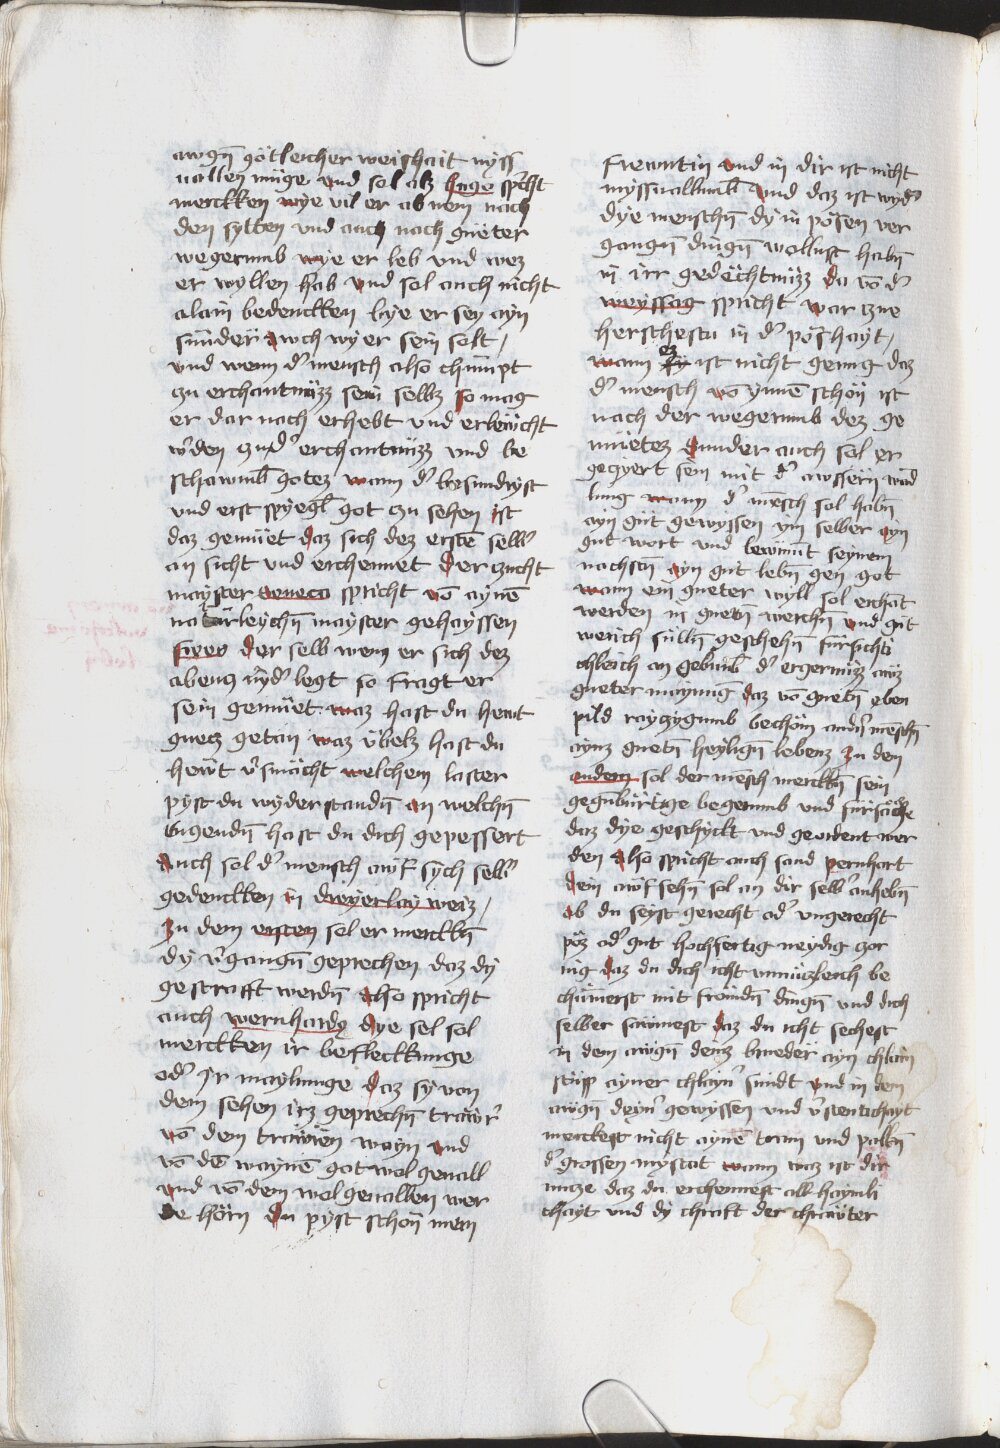 awgn̄ götleicher weishait myss
uallen müge vnd sol alz hugo spͥcht
merckken wye vil er ab nem nach
den sytten vnd auch nach gueter
wegerumb wye er leb vnd wez
er wyllen hab vnd sol auch nicht
alain bedenckken wye er sey ayn
sünder awch wy er sein solt /
vnd wenn dʼ mensch also chümpt
zu erchantnüzz sein selbz so mag
er dar nach erhebt vnd erleücht
wʼden zu dʼ erchantnüzz vnd be
schawūb gotez wann dʼ besundʼyst
vnd erst spyegl̄ got zu sehen ist
daz gemüet daz sich dez erstē selbʼ
an sicht vnd erchennet Der zucht
mayster Seneca spricht vō aynē
natürleychn̄ mayster gehayssen
der selb wenn er sich dez
abentz nydʼ legt so fragt er
sein gemüet waz hast du hewt
guetz getan waz übelz hast du
hewt vʼsmächt welchem laster
pyst du wyder standn̄ an welchn̄
tugendn̄ hast du dich gepessert
Auch sol dʼ mensch awf sych selbʼ
gedenckken in dreyerlay weiz /
Zu dem ersten sol er merckn̄
dy vʼgangn̄ geprechen daz dy
gestrafft werdn̄ Also spricht
auch wernhardꝰ dye sel sol
merckken ir befleckkunge
odʼ ir maylunge daz sy von
dem sehen irz geprechn̄ trawrʼ
vō dem trawren wayn vnd
vō dē waynē got wol geuall
vnd vō dem wolgeuallen wer
de hörn Du pyst schön mein
Frewntin vnd in dir ist nicht
myssuallumb̄ vnd daz ist wydʼ
dye menschn̄ dy in pösen ver
gangn̄ dingn̄ wollust habn̄
in irr gedächtnüzz da vō dʼ
weyssag spricht war zue
herschestu in dʼ poshayt /
wann ez ist nicht genug daz
dʼ mensch vō ynnē schön ist
nach der wegerumb dez ge
müetez Sunder auch sol er
geczyert sein mit dʼ awssern wād
lung wann dʼ mēsch sol habn̄
ayn güt gewyssen ym selber ayn
gut wort vnd lewmūt seynem
nachstn̄ ayn gut lebn̄ gen got
wann ein gueter wyll sol erchāt
werden in guetn̄ werchn̄ vnd güt
werich sülln̄ geschehn̄ fürsichti
chleich an gebumb̄ dʼ ergernüzz auz
gueter maynung daz vō guetn̄ eben
pild rayczygumb bechöm andʼn mēschn̄
aynz guetn̄ heylign̄ lebenz Zu dem
andern sol der mēsch merckn̄ sein
gegēbürtige begerumb vnd fürsäcze
daz dye geschyckt vnd geordent wer
den Also spricht auch sand pernhart
dein awfsehn̄ sol an dir selbʼ anhebn̄
ob du seyst gerecht odʼ vngerecht
pöz odʼ gut hochfertig neydig zor
nig daz du dich icht vnnüczleich be
chümerst mit frömdn̄ dingn̄ vnd dich
selber sawmest daz du icht sechest
in dem awgn̄ deinz brueder ayn chlain
stüpp ayner chlaynʼ sündt vnd in dem
awgn̄ deynʼ gewyssen vnd vʼstentichayt
merckest nicht aynē tram vnd palkn̄
dʼ grossen mystat wann waz ist dir
nucze daz du erchennest all haymli
chayt vnd dy chraft der chrawter